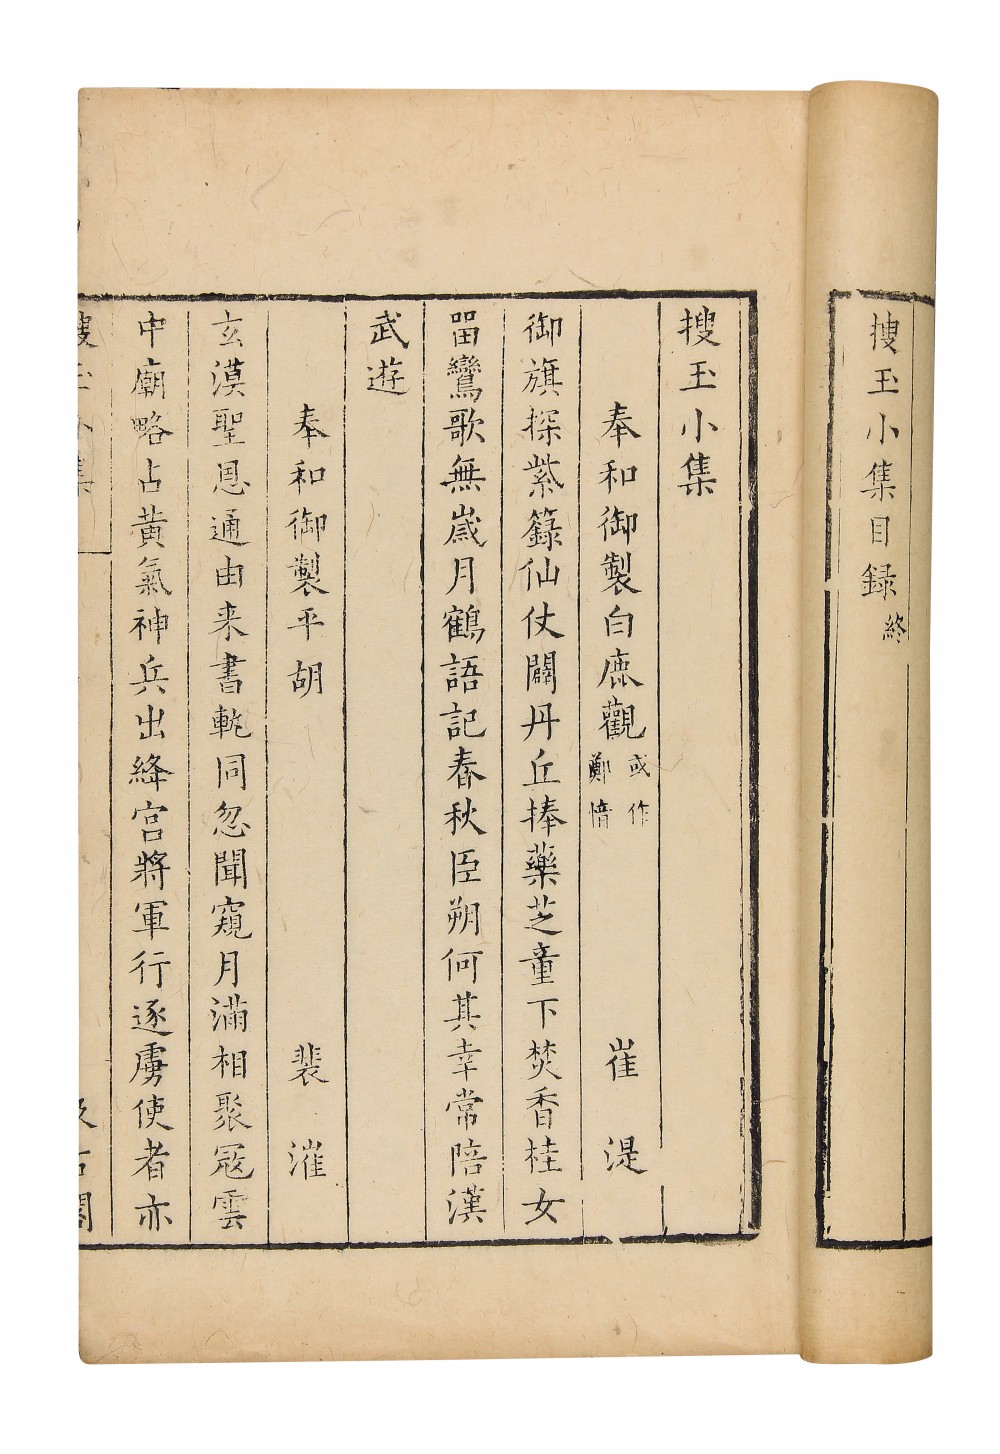 搜玉小集目録終
搜玉小集
奉和御製白鹿觀或作鄭愔 崔湜
御旗探紫籙仙仗闢丹丘捧藥芝童下焚香桂女
畱鸞歌無歲月鶴語記春秋臣朔何其幸常陪漢
武遊
奉和御製平胡 裴漼
玄漠聖恩通由来書軌同忽聞窺月滿相聚寇雲
中廟略占黃氣神兵出絳宮將軍行逐虜使者亦
搜玉小集 汲古閣